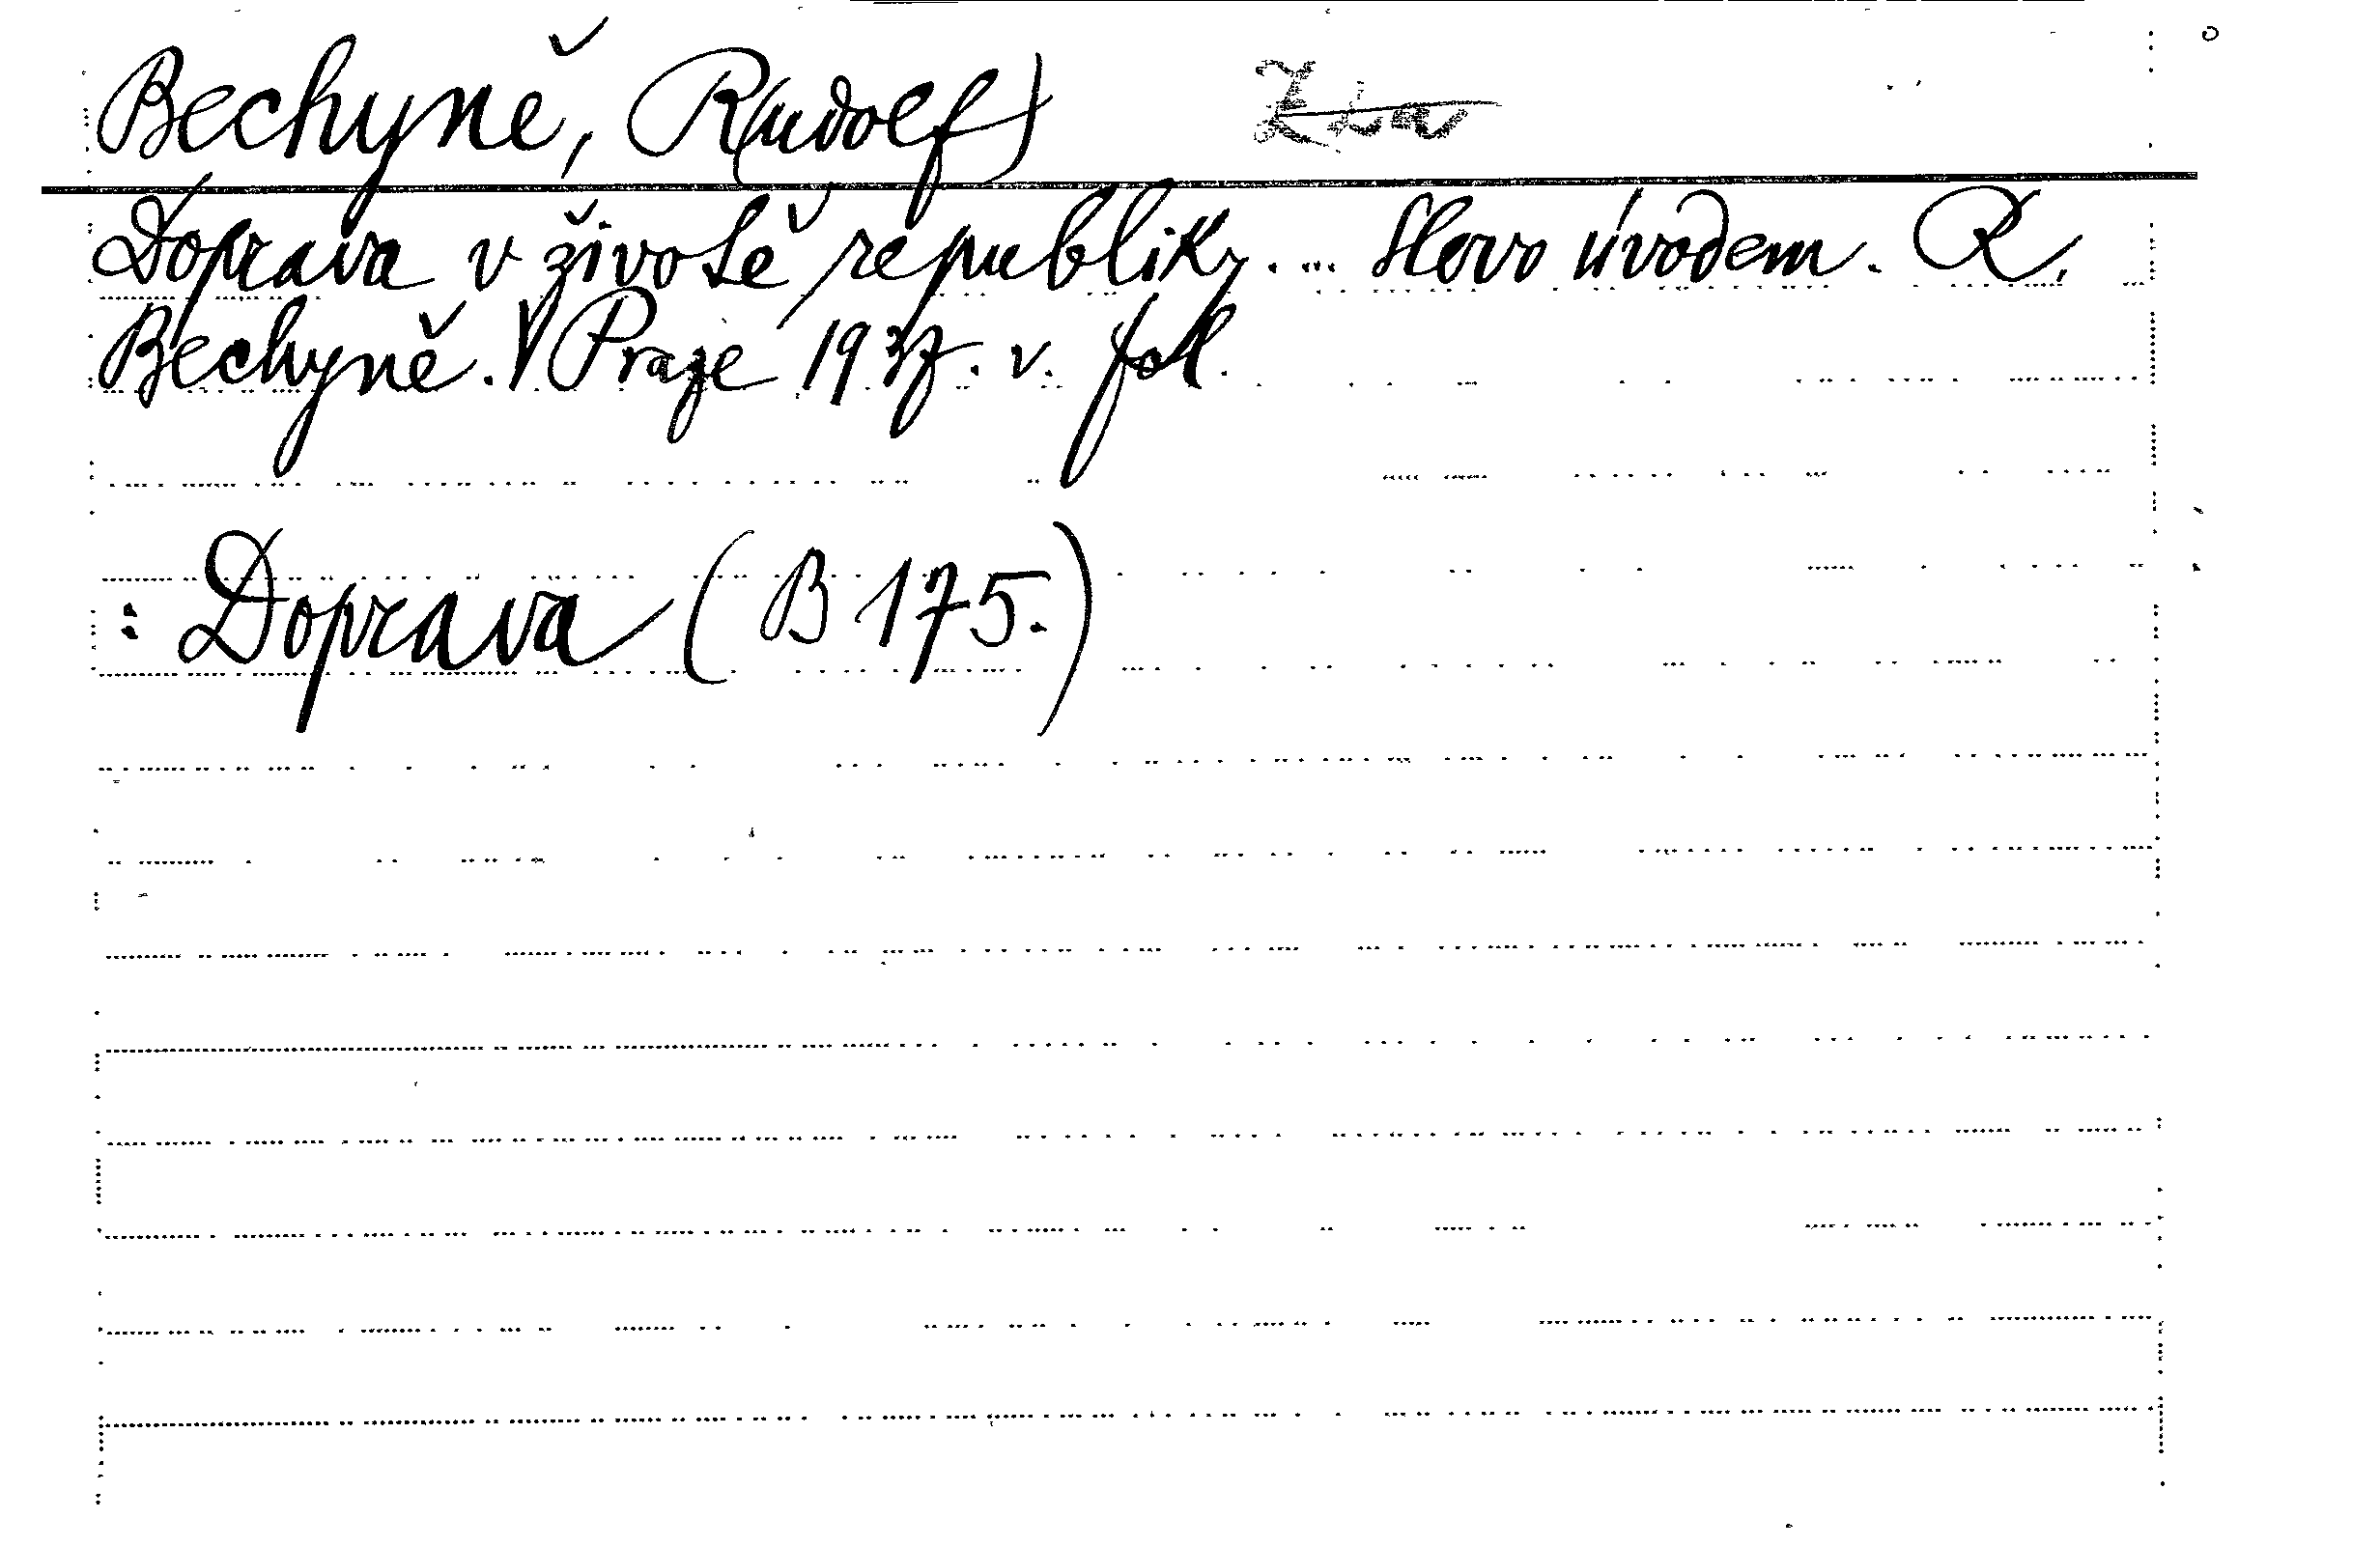 Bechyně, R(udolf)
Doprava v životě republiky. ... Slovo úvodem. R.
Bechyně. V Praze 1937. v. fol.
: Doprava (B 175.)